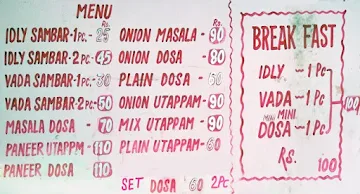 MENU
Rs.
IDLY SAMBAR-1PC.-25
IDLY SAMBAR-2.PC-45
VADA SAMBAR-1PC-30
VADA SAMBAR-2PC-50
MASALA DOSA - 70
PANEER UTPPAM - 110
PANEER DOSA - 110
Rs.
ONION MASALA - 90
ONION DOSA - 80
PLAIN DOSA - 50
ONION UTAPPAM - 90
MIX UTAPPAM - 90
PLAIN UTAPPAM - 60
SET DOSA 60 2PC
BREAK FAST
IDLY ~ 1 PC
VADA ~ 1 PC
MINI MINI
DOSA ~ 1 PC
100
RS. 100